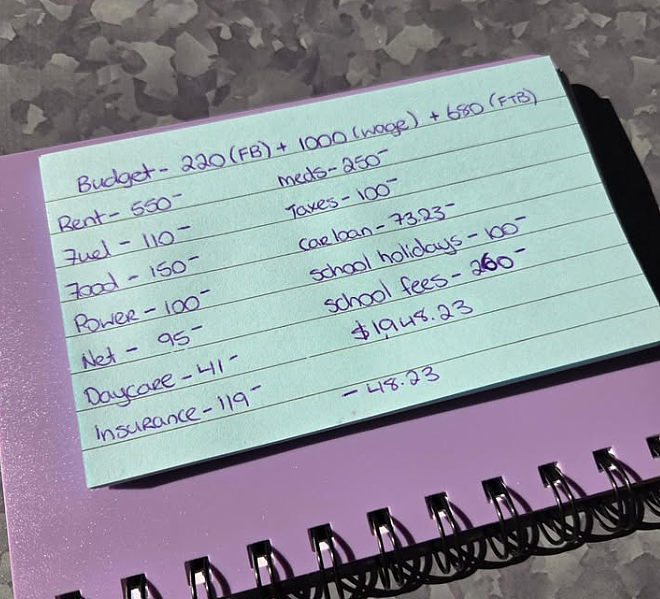 Budget - 220 (FB) + 1000 (wage) + 680 (FTB)
Rent - 550 -
Fuel - 110 -
Food - 150 -
Power - 100 -
Net - 95 -
Daycare - 41 -
Insurance - 119 -
meds - 250 -
Taxes - 100 -
car loan - 73.23 -
school holidays - 100 -
school fees - 260 -
$1948.23
- 48.23